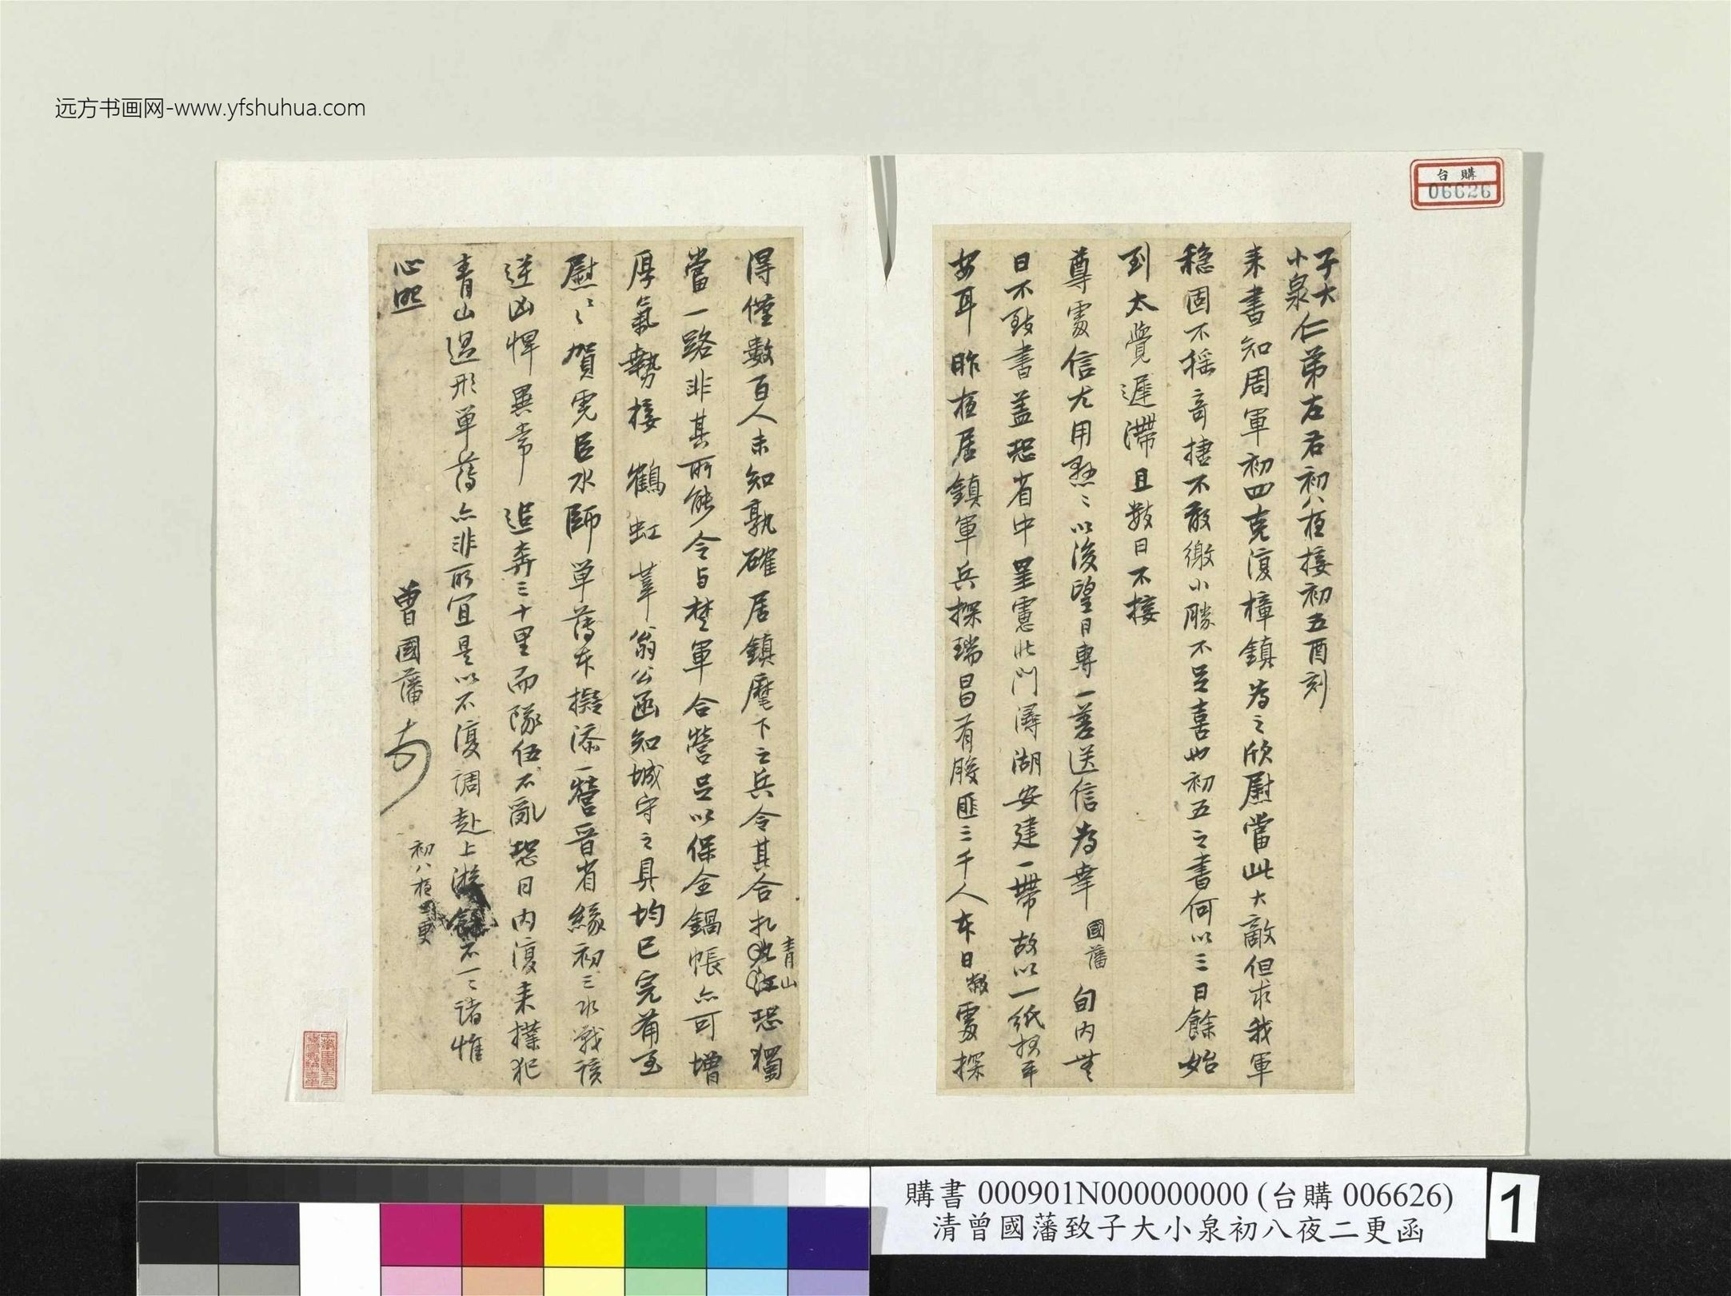 远方书画网-www.yfshuhua.com
台購
06626
子大
小泉仁弟左右初八夜接初五酉刻
来書知周軍初四克復樟鎮為之欣慰當此大敵但求我軍
穩固不搖奇捷不敢徼小勝不足喜也初五之書何以三日餘始
到太覺遲滯且數日不接
尊處信尤用懸〻以後望日專一差送信為幸 國藩 旬内無
日不致書蓋恐省中罣慮此間潯湖安建一帶故以一紙報平
安耳 昨夜居鎮軍兵探瑞昌有股匪三千人本日敝處探
得僅數百人未知孰確居鎮麾下之兵令其合扎青山恐獨
當一路非其所能令与楚軍合營足以保全鍋帳亦可增
厚氣勢接 鶴 虹 峯翁公函知城守之具均已完備至
慰〻賀虎臣水師單薄本擬添一營晋省緣初三水戰該
逆凶悍異常 追奔三十里而隊伍不亂恐日内復来撲犯
青山過形單薄亦非所宜是以不復調赴上游餘不一〻諸惟
心照
曾國藩頓
初八夜二更
購書 000901N000000000 (台購 006626)
清曾國藩致子大小泉初八夜二更函
1